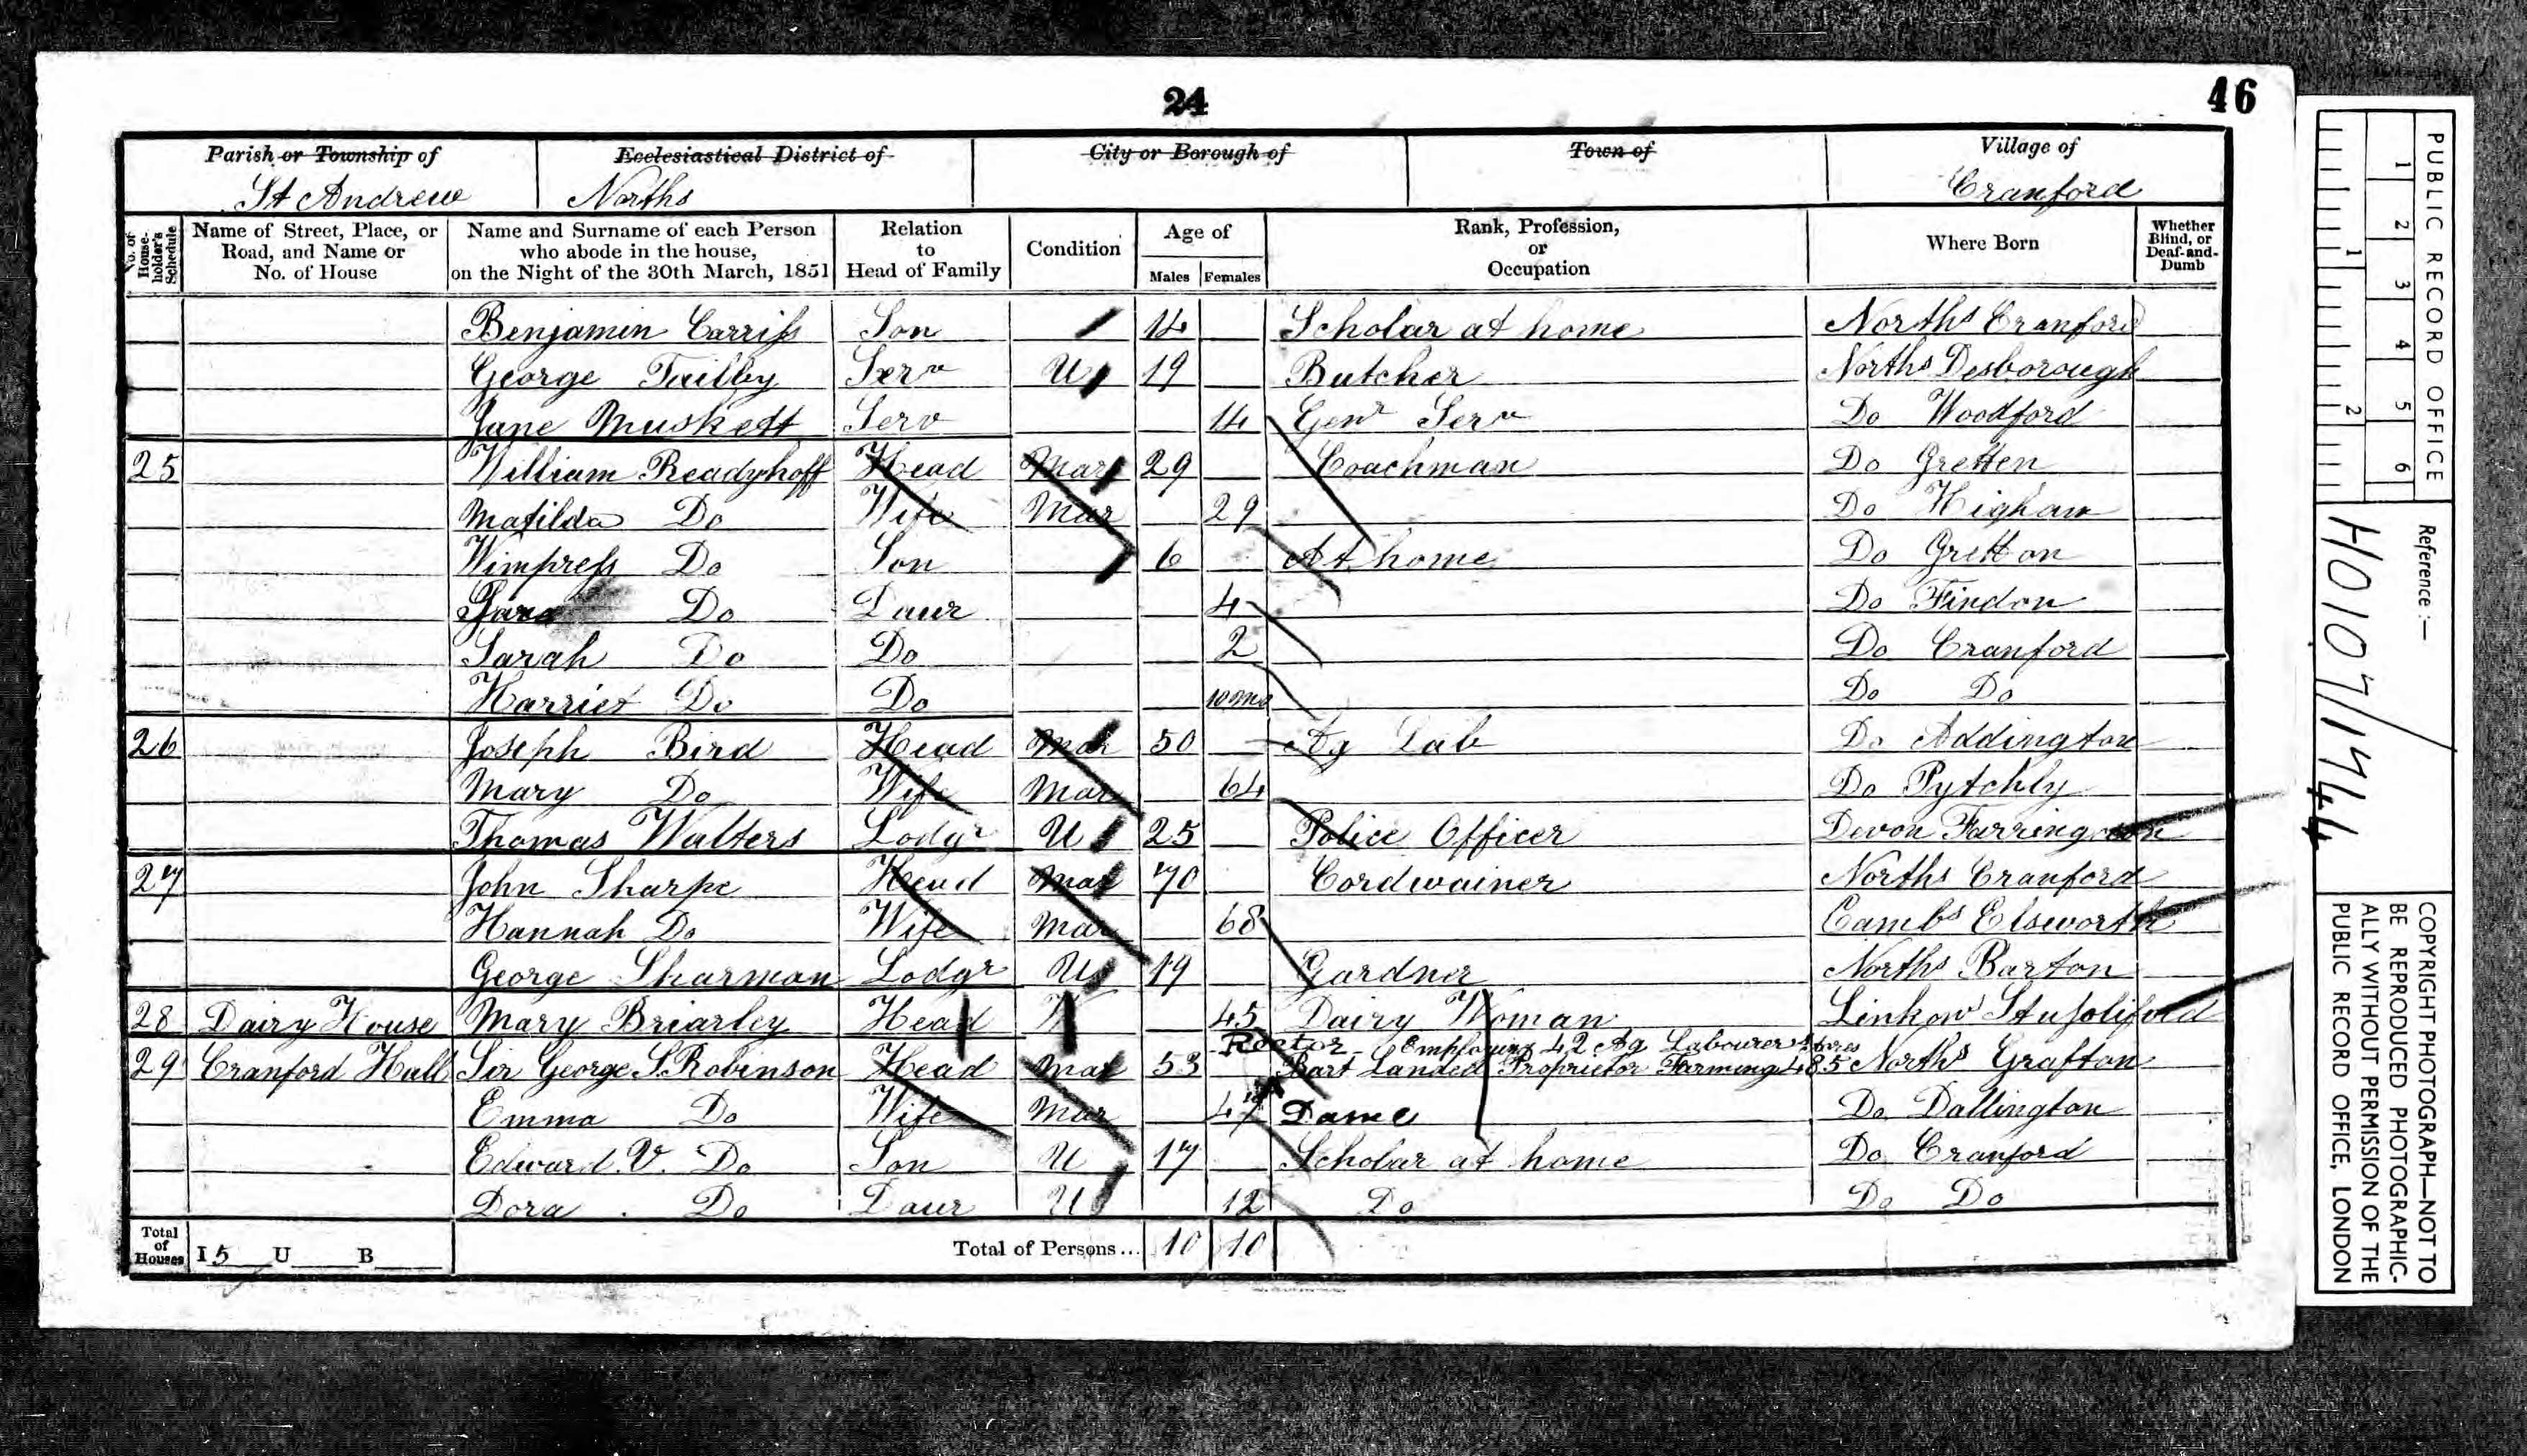 24
46
Parish or Township of Ecclesiastical District of City or Borough of Town of Village of
St Andrew Norths Cranford
No. of House-holder's Schedule
Name of Street, Place, or Road, and Name or No. of House
Name and Surname of each Person who abode in the house, on the Night of the 30th March, 1851
Relation to Head of Family
Condition
Age of
Males Females
Rank, Profession, or Occupation
Where Born
Whether Blind, or Deaf-and-Dumb
Benjamin Carriss Son 14 Scholar at home Norths Cranford
George Tailby Serv U 19 Butcher Norths Desborough
Jane Muskett Serv 14 Genl Serv Do Woodford
25 William Readyhoff Head Mar 29 Coachman Do Gretten
Matilda Do Wife Mar 29 Do Higham
Wimpress Do Son 6 At home Do Gretton
Do Daur 4 Do Findon
Sarah Do Do 2 Do Cranford
Harriet Do Do 10 mo Do Do
26 Joseph Bird Head Mar 50 Ag Lab Do Addington
Mary Do Wife Mar 64 Do Pytchly
Thomas Walters Lodgr U 25 Police Officer Devon
27 John Sharpe Head Mar 70 Cordwainer Norths Cranford
Hannah Do Wife Mar 68 Cambs Elsworth
George Sharman Lodgr U 19 Gardner Norths Barton
28 Dairy House Mary Briarley Head 45 Dairy Woman
Rector Employing 42 Ag Labourers Acres
29 Cranford Hall Sir George S. Robinson Head Mar 53 Bart Landed Proprietor Farming 485 Norths Grafton
Emma Do Wife Mar 47 Dame Do Dallington
Edward V. Do Son U 17 Scholar at home Do Cranford
Dora Do Daur U 12 Do Do Do
Total of Houses I 5 U B Total of Persons... 10 10
PUBLIC RECORD OFFICE
1 2 3 4 5 6
1 2
Reference :—
HO107/1744
COPYRIGHT PHOTOGRAPH—NOT TO
BE REPRODUCED PHOTOGRAPHIC-
ALLY WITHOUT PERMISSION OF THE
PUBLIC RECORD OFFICE, LONDON